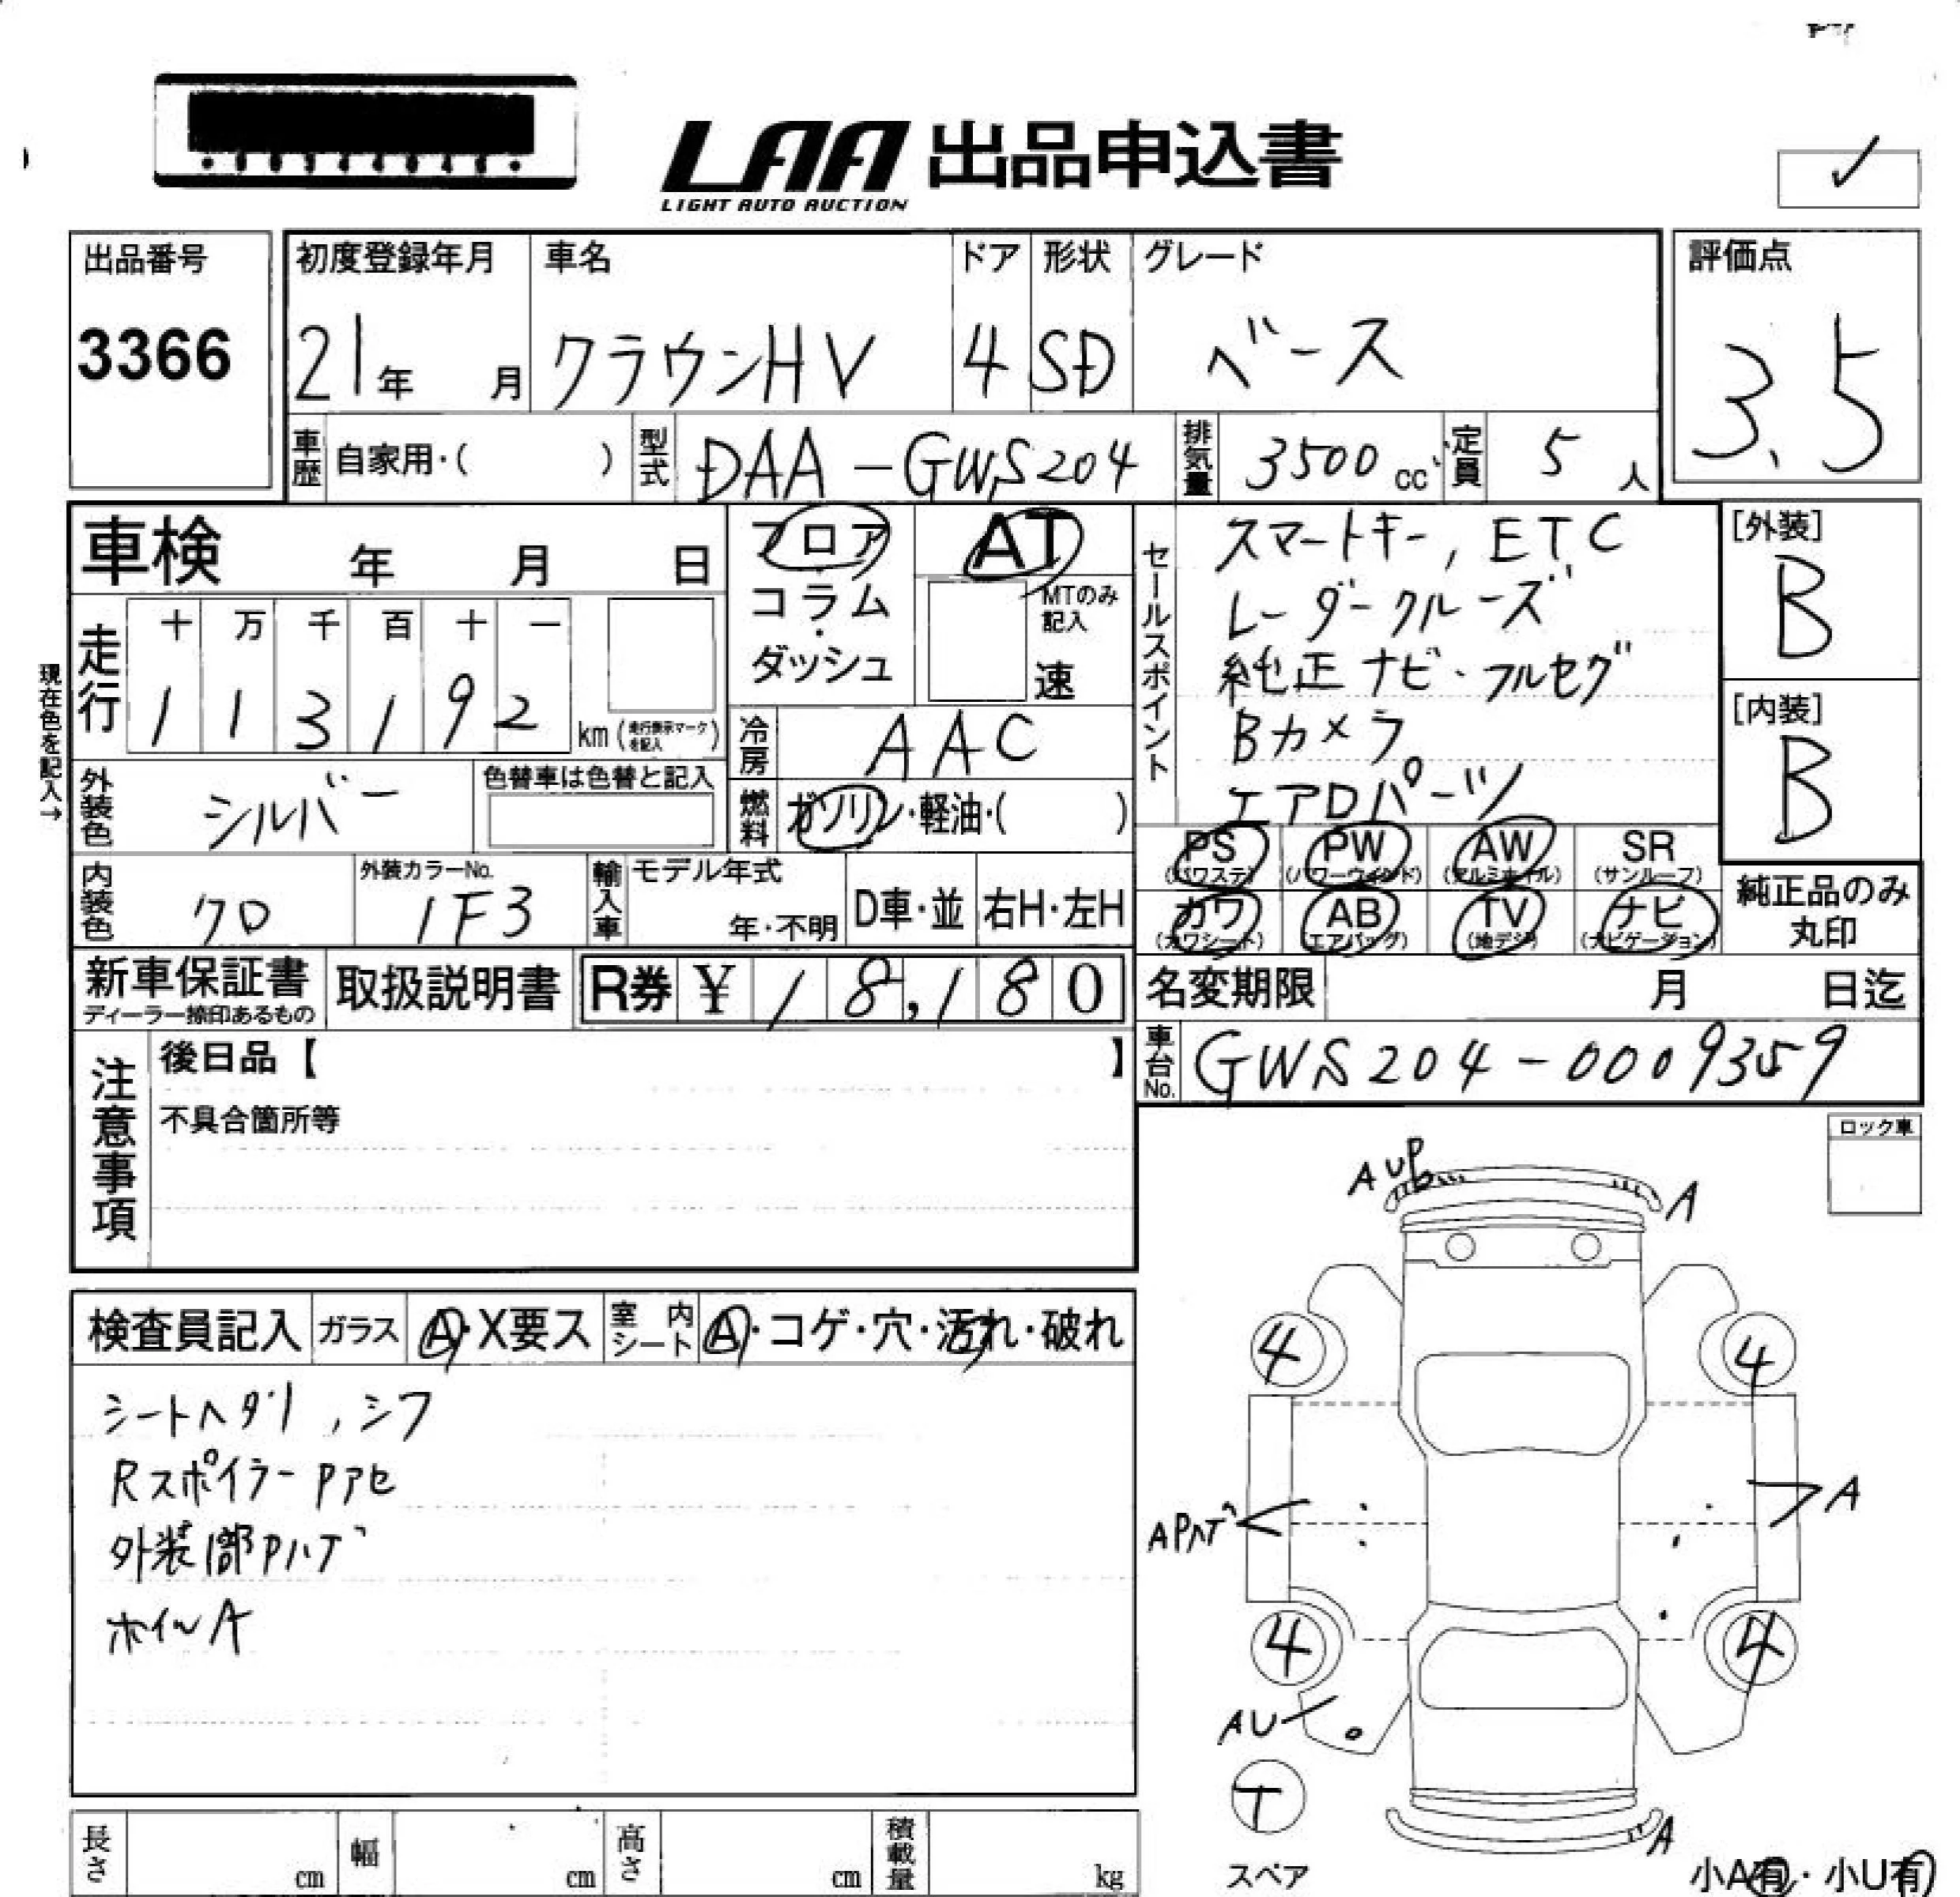 LAA 出品申込書
LIGHT AUTO AUCTION
出品番号
3366
初度登録年月
21年 月
車名
クラウンHV
ドア
4
形状
SD
グレード
ベース
評価点
3.5
車歴 自家用・( )
型式 DAA-GWS204
排気量 3500cc
定員 5人
車検 年 月 日
フロア・コラム・ダッシュ
AT
MTのみ記入
速
セールスポイント
スマートキー, ETC
レーダークルーズ
純正ナビ・フルセグ
Bカメラ
エアロパーツ
[外装]
B
[内装]
B
現在色を記入→
走行
十 万 千 百 十 一
1 1 3 1 9 2 km(走行表示マークを記入)
冷房 AAC
燃料 ガソリン・軽油・( )
外装色 シルバー
色替車は色替と記入
内装色 クロ
外装カラーNo.
1F3
輸入車 モデル年式
年・不明
D車・並
右H・左H
PS (パワステ)
PW (パワーウィンド)
AW (アルミホイル)
SR (サンルーフ)
カワ (カワシート)
AB (エアバッグ)
TV (地デジ)
ナビ (ナビゲーション)
純正品のみ丸印
新車保証書
ディーラー捺印あるもの
取扱説明書
R券 ¥18,180
名変期限 月 日迄
車台No. GWS204-0009359
注意事項
後日品【 】
不具合箇所等
ロック車
検査員記入
ガラス A・X要ス
室内シート A・コゲ・穴・汚れ・破れ
シートヘタリ, シワ
Rスポイラー Pアセ
外装1部Pハゲ
ホイルA
AUP
A
4
4
APハゲ
A
4
4
AU
T
スペア
A
小A有・小U有
長さ cm
幅 cm
高さ cm
積載量 kg